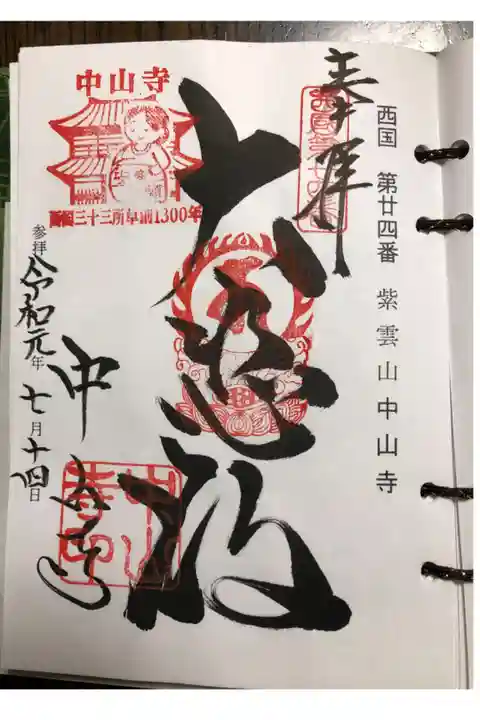 西国 第廿四番 紫雲山中山寺
奉拝
大悲殿
中山寺
西国三十三所草創1300年
中山寺
参拝 令和元年七月十四日